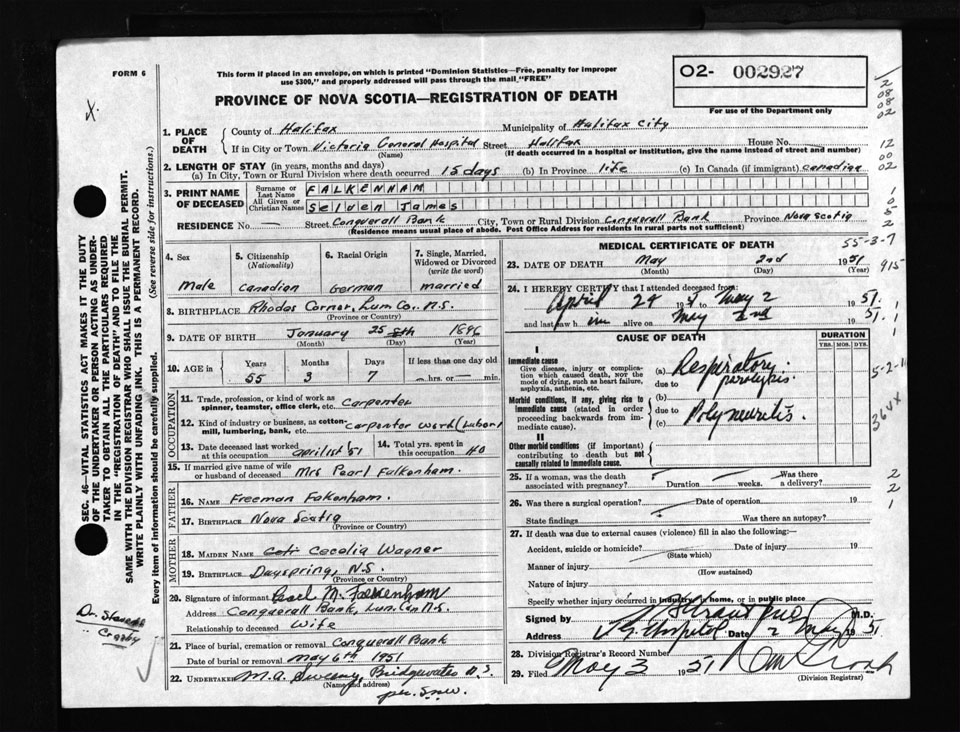 FORM 6
This form if placed in an envelope, on which is printed "Dominion Statistics—Free, penalty for improper
use $300," and properly addressed will pass through the mail "FREE"
PROVINCE OF NOVA SCOTIA—REGISTRATION OF DEATH
02- 002927
For use of the Department only
X.
1. PLACE OF DEATH
County of Halifax Municipality of Halifax City
If in City or Town Victoria General Hospital Street Halifax House No.
(Name) (If death occurred in a hospital or institution, give the name instead of street and number)
2. LENGTH OF STAY (in years, months and days)
(a) In City, Town or Rural Division where death occurred 15 days (b) In Province life (c) In Canada (if immigrant) Canadian
3. PRINT NAME OF DECEASED
Surname or Last Name FALKENHAM
All Given or Christian Names Selden James
RESIDENCE No. — Street Conquerall Bank City, Town or Rural Division Conquerall Bank Province Nova Scotia
(Residence means usual place of abode. Post Office Address for residents in rural parts not sufficient)
4. Sex
Male
5. Citizenship
(Nationality)
Canadian
6. Racial Origin
German
7. Single, Married, Widowed or Divorced
(write the word)
married
8. BIRTHPLACE Rhodas Corner, Lun. Co., N.S.
(Province or Country)
9. DATE OF BIRTH January 25 8th 1896
(Month) (Day) (Year)
10. AGE in Years Months Days If less than one day old
55 3 7 — hrs. or — min.
OCCUPATION
11. Trade, profession, or kind of work as
spinner, teamster, office clerk, etc. Carpenter
12. Kind of industry or business, as cotton-
mill, lumbering, bank, etc. Carpenter work (Labor)
13. Date deceased last worked
at this occupation April 1st 51
14. Total yrs. spent in
this occupation 40
15. If married give name of wife
or husband of deceased Mrs Pearl Falkenham.
FATHER
16. NAME Freeman Fakenham.
17. BIRTHPLACE Nova Scotia
(Province or Country)
MOTHER
18. MAIDEN NAME Cecelia Wagner
19. BIRTHPLACE Dayspring, N.S.
(Province or Country)
20. Signature of informant Pearl M. Falkenham
Address Conquerall Bank, Lun. Co. N.S.
Relationship to deceased Wife
21. Place of burial, cremation or removal Conquerall Bank
Date of burial or removal May 6th 1951
22. UNDERTAKER M.A. Sweeny, Bridgewater N.S.
(Name and address)
MEDICAL CERTIFICATE OF DEATH
55-3-7
23. DATE OF DEATH May 2nd 1951
(Month) (Day) (Year)
24. I HEREBY CERTIFY that I attended deceased from:
April 24 May 2 1951
and last saw him alive on May 2nd 1951.
CAUSE OF DEATH
DURATION
YRS. MOS. DYS.
I
Immediate cause
Give disease, injury or complica-
tion which caused death, not the
mode of dying, such as heart failure,
asphyxia, asthenia, etc.
(a) Respiratory paralysis.
due to
Morbid conditions, if any, giving rise to
immediate cause (stated in order
proceeding backwards from im-
mediate cause).
(b)
due to Polyneuritis.
(c)
II
Other morbid conditions (if important)
contributing to death but not
causally related to immediate cause.
25. If a woman, was the death
associated with pregnancy? Duration weeks. Was there a delivery?
26. Was there a surgical operation? Date of operation 19
State findings Was there an autopsy?
27. If death was due to external causes (violence) fill in also the following:
Accident, suicide or homicide? Date of injury 19
(State which)
Manner of injury
(How sustained)
Nature of injury
Specify whether injury occurred in industry, in home, or in public place
Signed by M.D.
Address V.G. Hospital Date 2 May 1951
28. Division Registrar's Record Number
29. Filed May 3 1951
(Division Registrar)
SEC. 46—VITAL STATISTICS ACT MAKES IT THE DUTY
OF THE UNDERTAKER OR PERSON ACTING AS UNDER-
TAKER TO OBTAIN ALL THE PARTICULARS REQUIRED
IN THE "REGISTRATION OF DEATH" AND TO FILE THE
SAME WITH THE DIVISION REGISTRAR WHO SHALL ISSUE THE BURIAL PERMIT.
WRITE PLAINLY WITH UNFADING INK. THIS IS A PERMANENT RECORD.
Every item of information should be carefully supplied. (See reverse side for instructions.)
2
08
08
02
12
00
02
1
0
5
2
915
5-2-11
364X
2
2
1